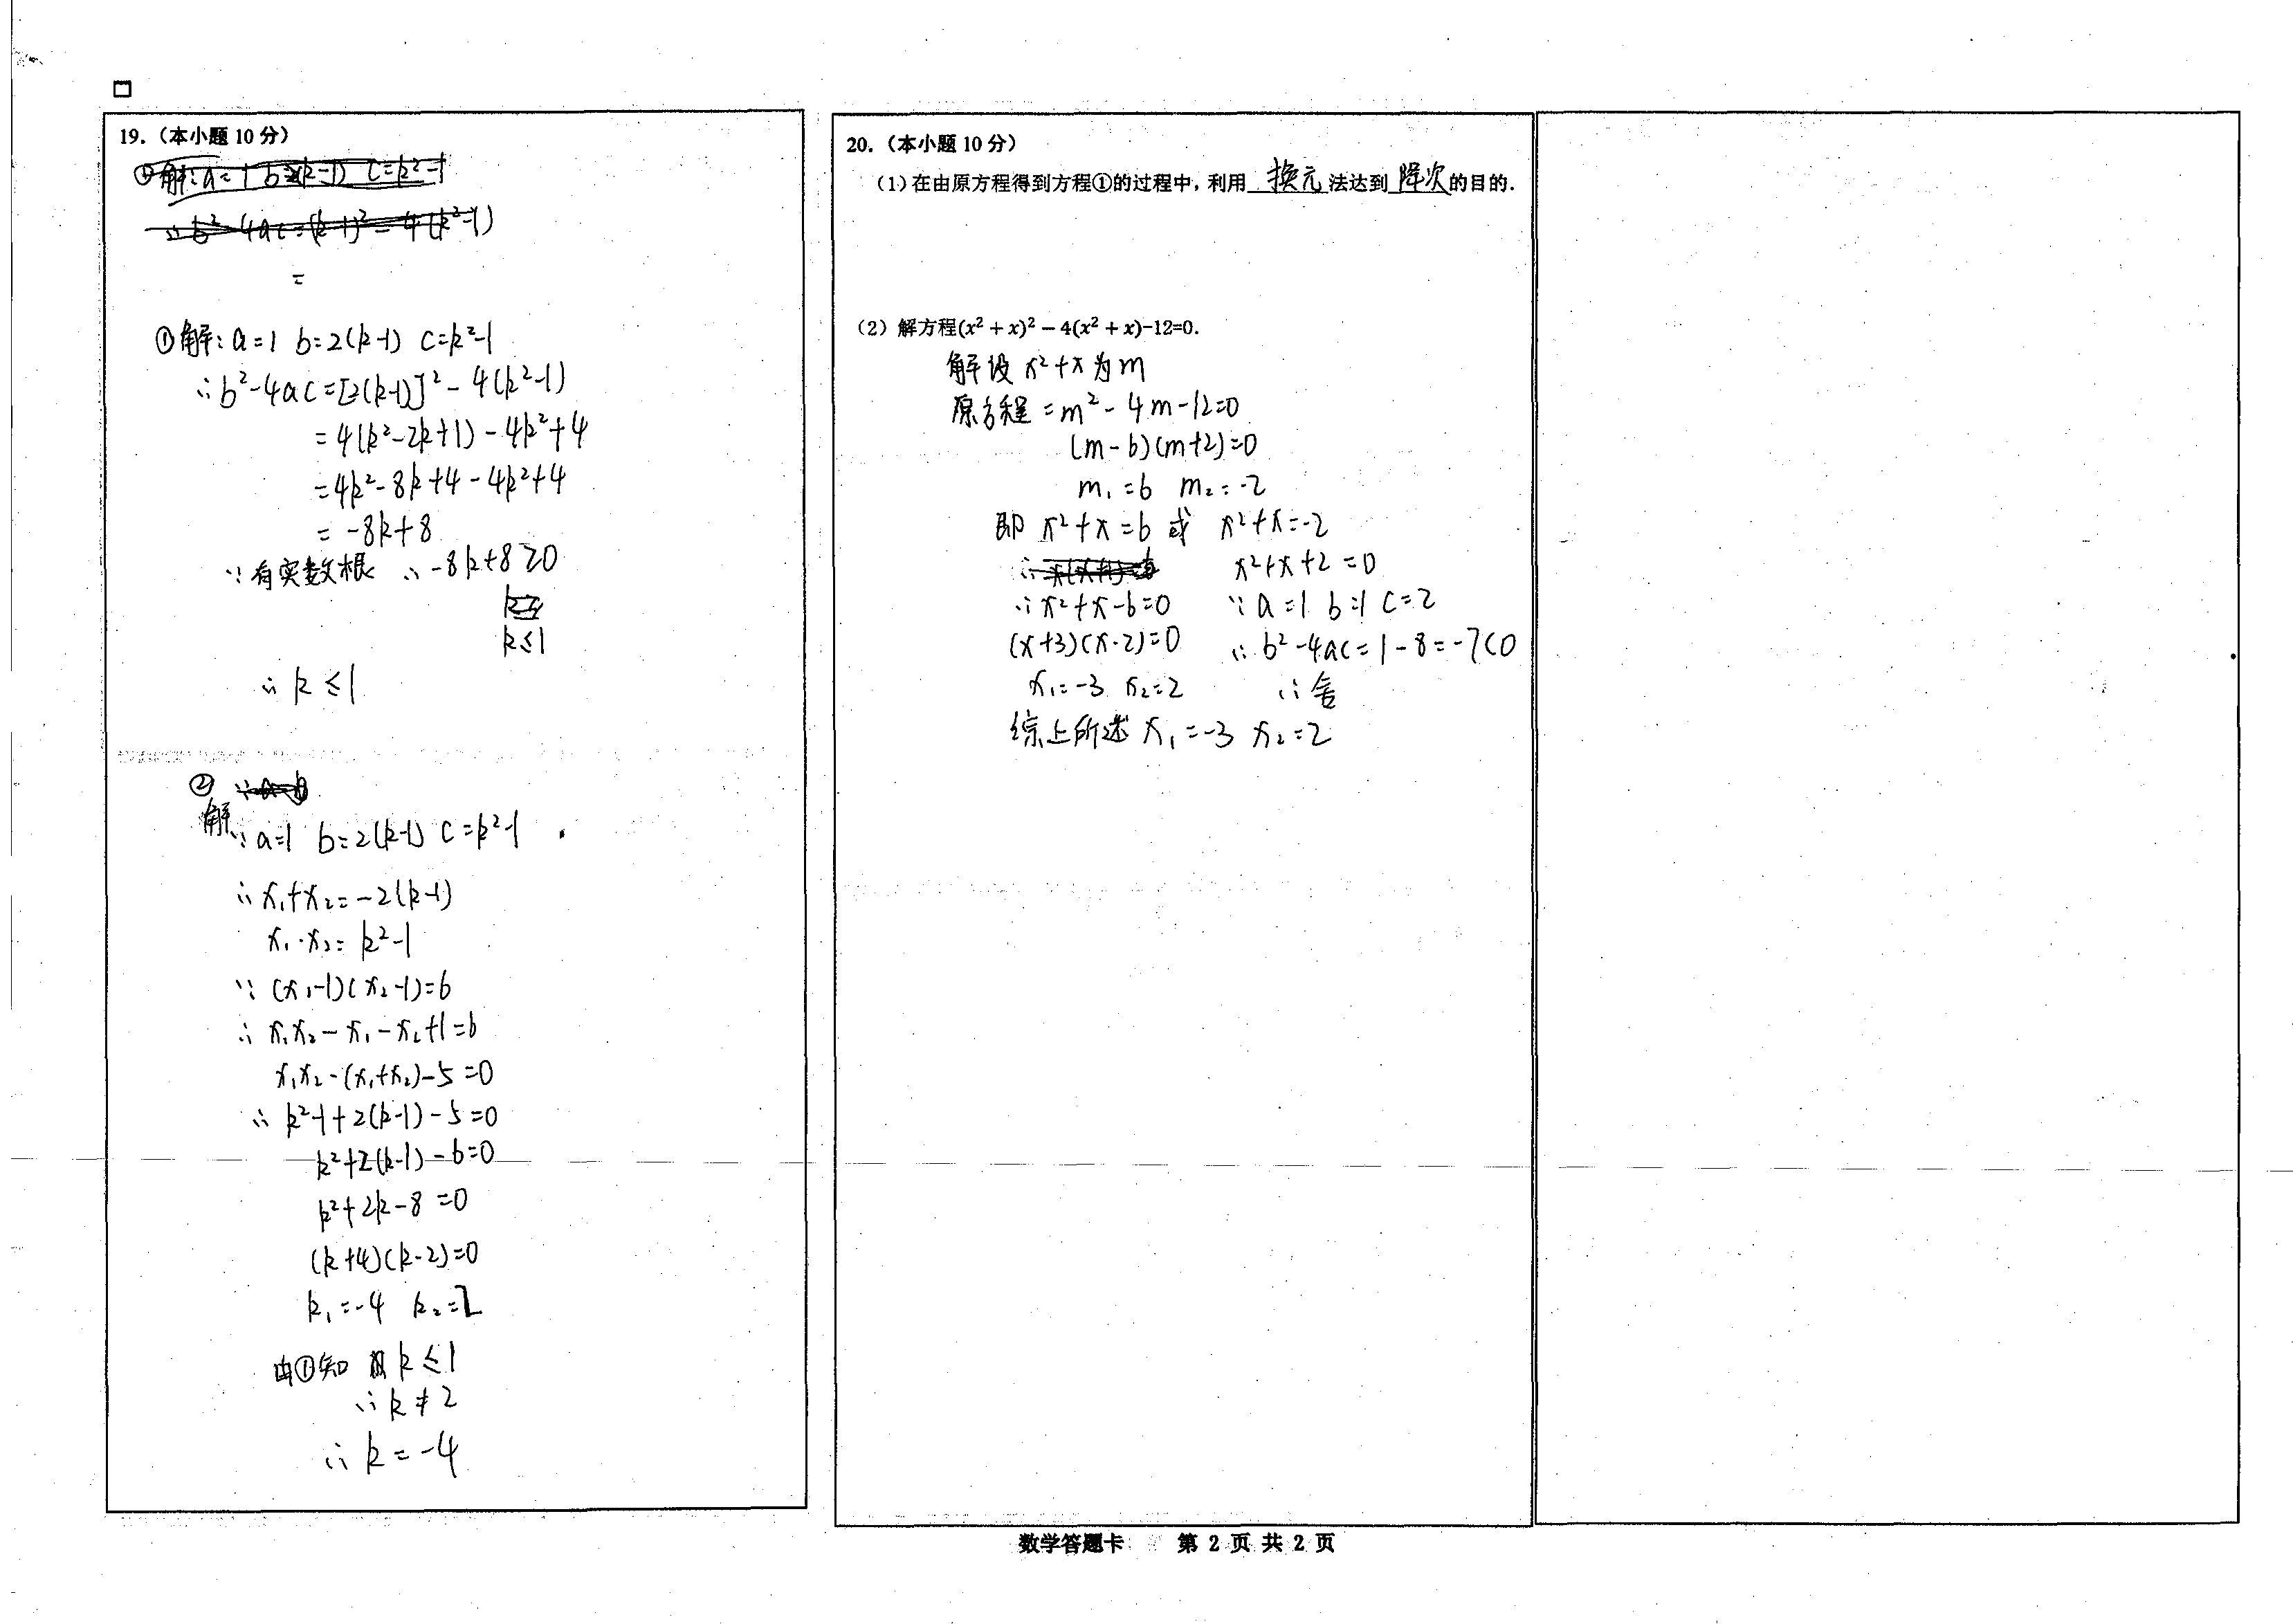 19.（本小题 10 分）
①解：a=1 b=2(k-1) c=k²-1
∴b²-4ac=(k-1)²-4(k²-1)
=
①解：a=1 b=2(k-1) c=k²-1
∴b²-4ac=[2(k-1)]²-4(k²-1)
=4(k²-2k+1)-4k²+4
=4k²-8k+4-4k²+4
=-8k+8
∵有实数根 ∴-8k+8≥0
k≤1
∴k≤1
②
解∵a=1 b=2(k-1) c=k²-1
∴x₁+x₂=-2(k-1)
x₁·x₂=k²-1
∵(x₁-1)(x₂-1)=6
∴x₁x₂-x₁-x₂+1=6
x₁x₂-(x₁+x₂)-5=0
∴k²-1+2(k-1)-5=0
k²+2(k-1)-6=0
k²+2k-8=0
(k+4)(k-2)=0
k₁=-4 k₂=2
由①知 k≤1
∴k≠2
∴k=-4
20.（本小题 10 分）
（1）在由原方程得到方程①的过程中，利用 换元 法达到 降次 的目的.
（2）解方程(x²+x)²-4(x²+x)-12=0.
解设x²+x为m
原方程=m²-4m-12=0
(m-6)(m+2)=0
m₁=6 m₂=-2
即 x²+x=6 或 x²+x=-2
x²+x+2=0
∴x²+x-6=0 ∵a=1 b=1 c=2
(x+3)(x-2)=0 ∴b²-4ac=1-8=-7<0
x₁=-3 x₂=2 ∴舍
综上所述 x₁=-3 x₂=2
数学答题卡 第 2 页 共 2 页